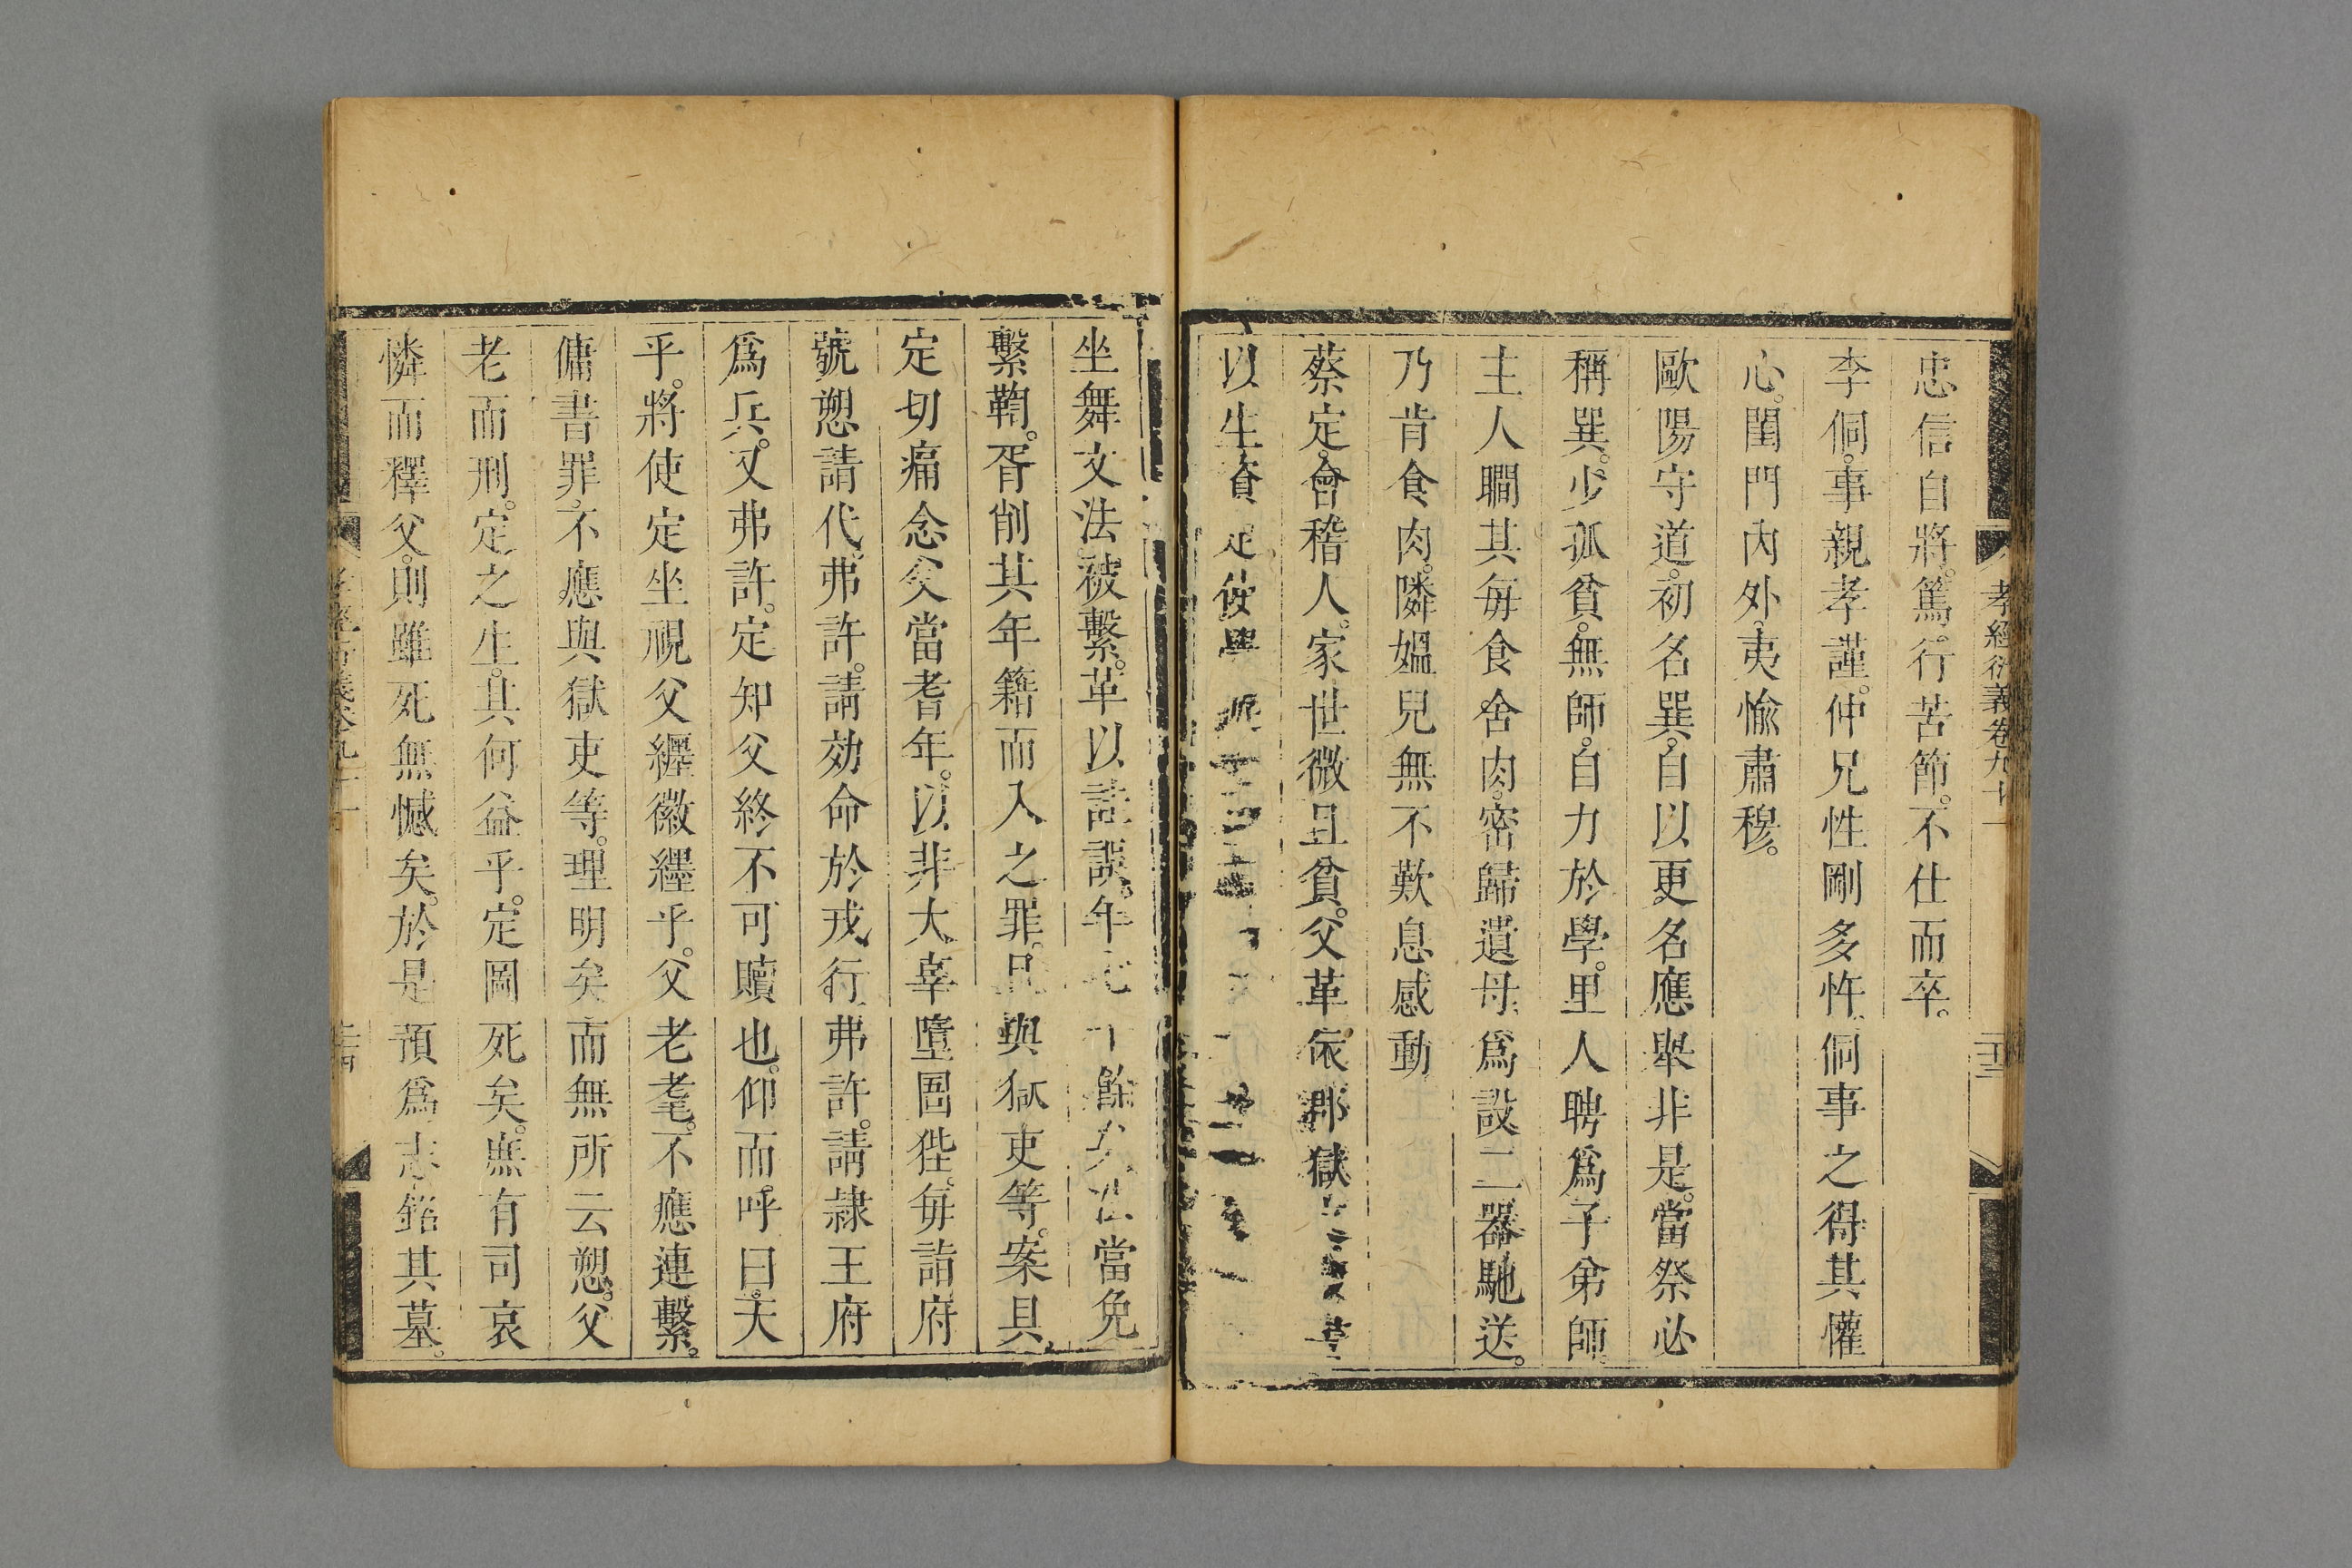 孝經衍義卷九十一
忠信自將。篤行苦節。不仕而卒。
李侗。事親孝謹。仲兄性剛多忤。侗事之得其懽
心。閨門內外。夷愉肅穆。
歐陽守道。初名巽。自以更名應舉非是。當祭必
稱巽。少孤貧。無師。自力於學。里人聘爲子弟師。
主人瞷其每食舍肉。密歸遺母。爲設二器馳送。
乃肯食肉。隣媼兒無不歎息感動
蔡定。會稽人。家世微且貧。父革。依郡獄
以生資定使學
坐舞文法被繫。革以詿誤。年 十餘矣法當免
繫鞫。胥削其年籍而入之罪。與獄吏等。案具。
定切痛念父當耆年。以非大辜墮圄狴。每詣府
號愬請代。弗許。請効命於戎行。弗許。請隷王府
爲兵。又弗許。定知父終不可贖也。仰而呼曰。天
乎。將使定坐視父纏徽纆乎。父老耄。不應連繫。
傭書罪不應與獄吏等。理明矣而無所云愬。父
老而刑。定之生。其何益乎。定圖死矣。庶有司哀
憐而釋父。則雖死無憾矣。於是預爲志銘其墓。